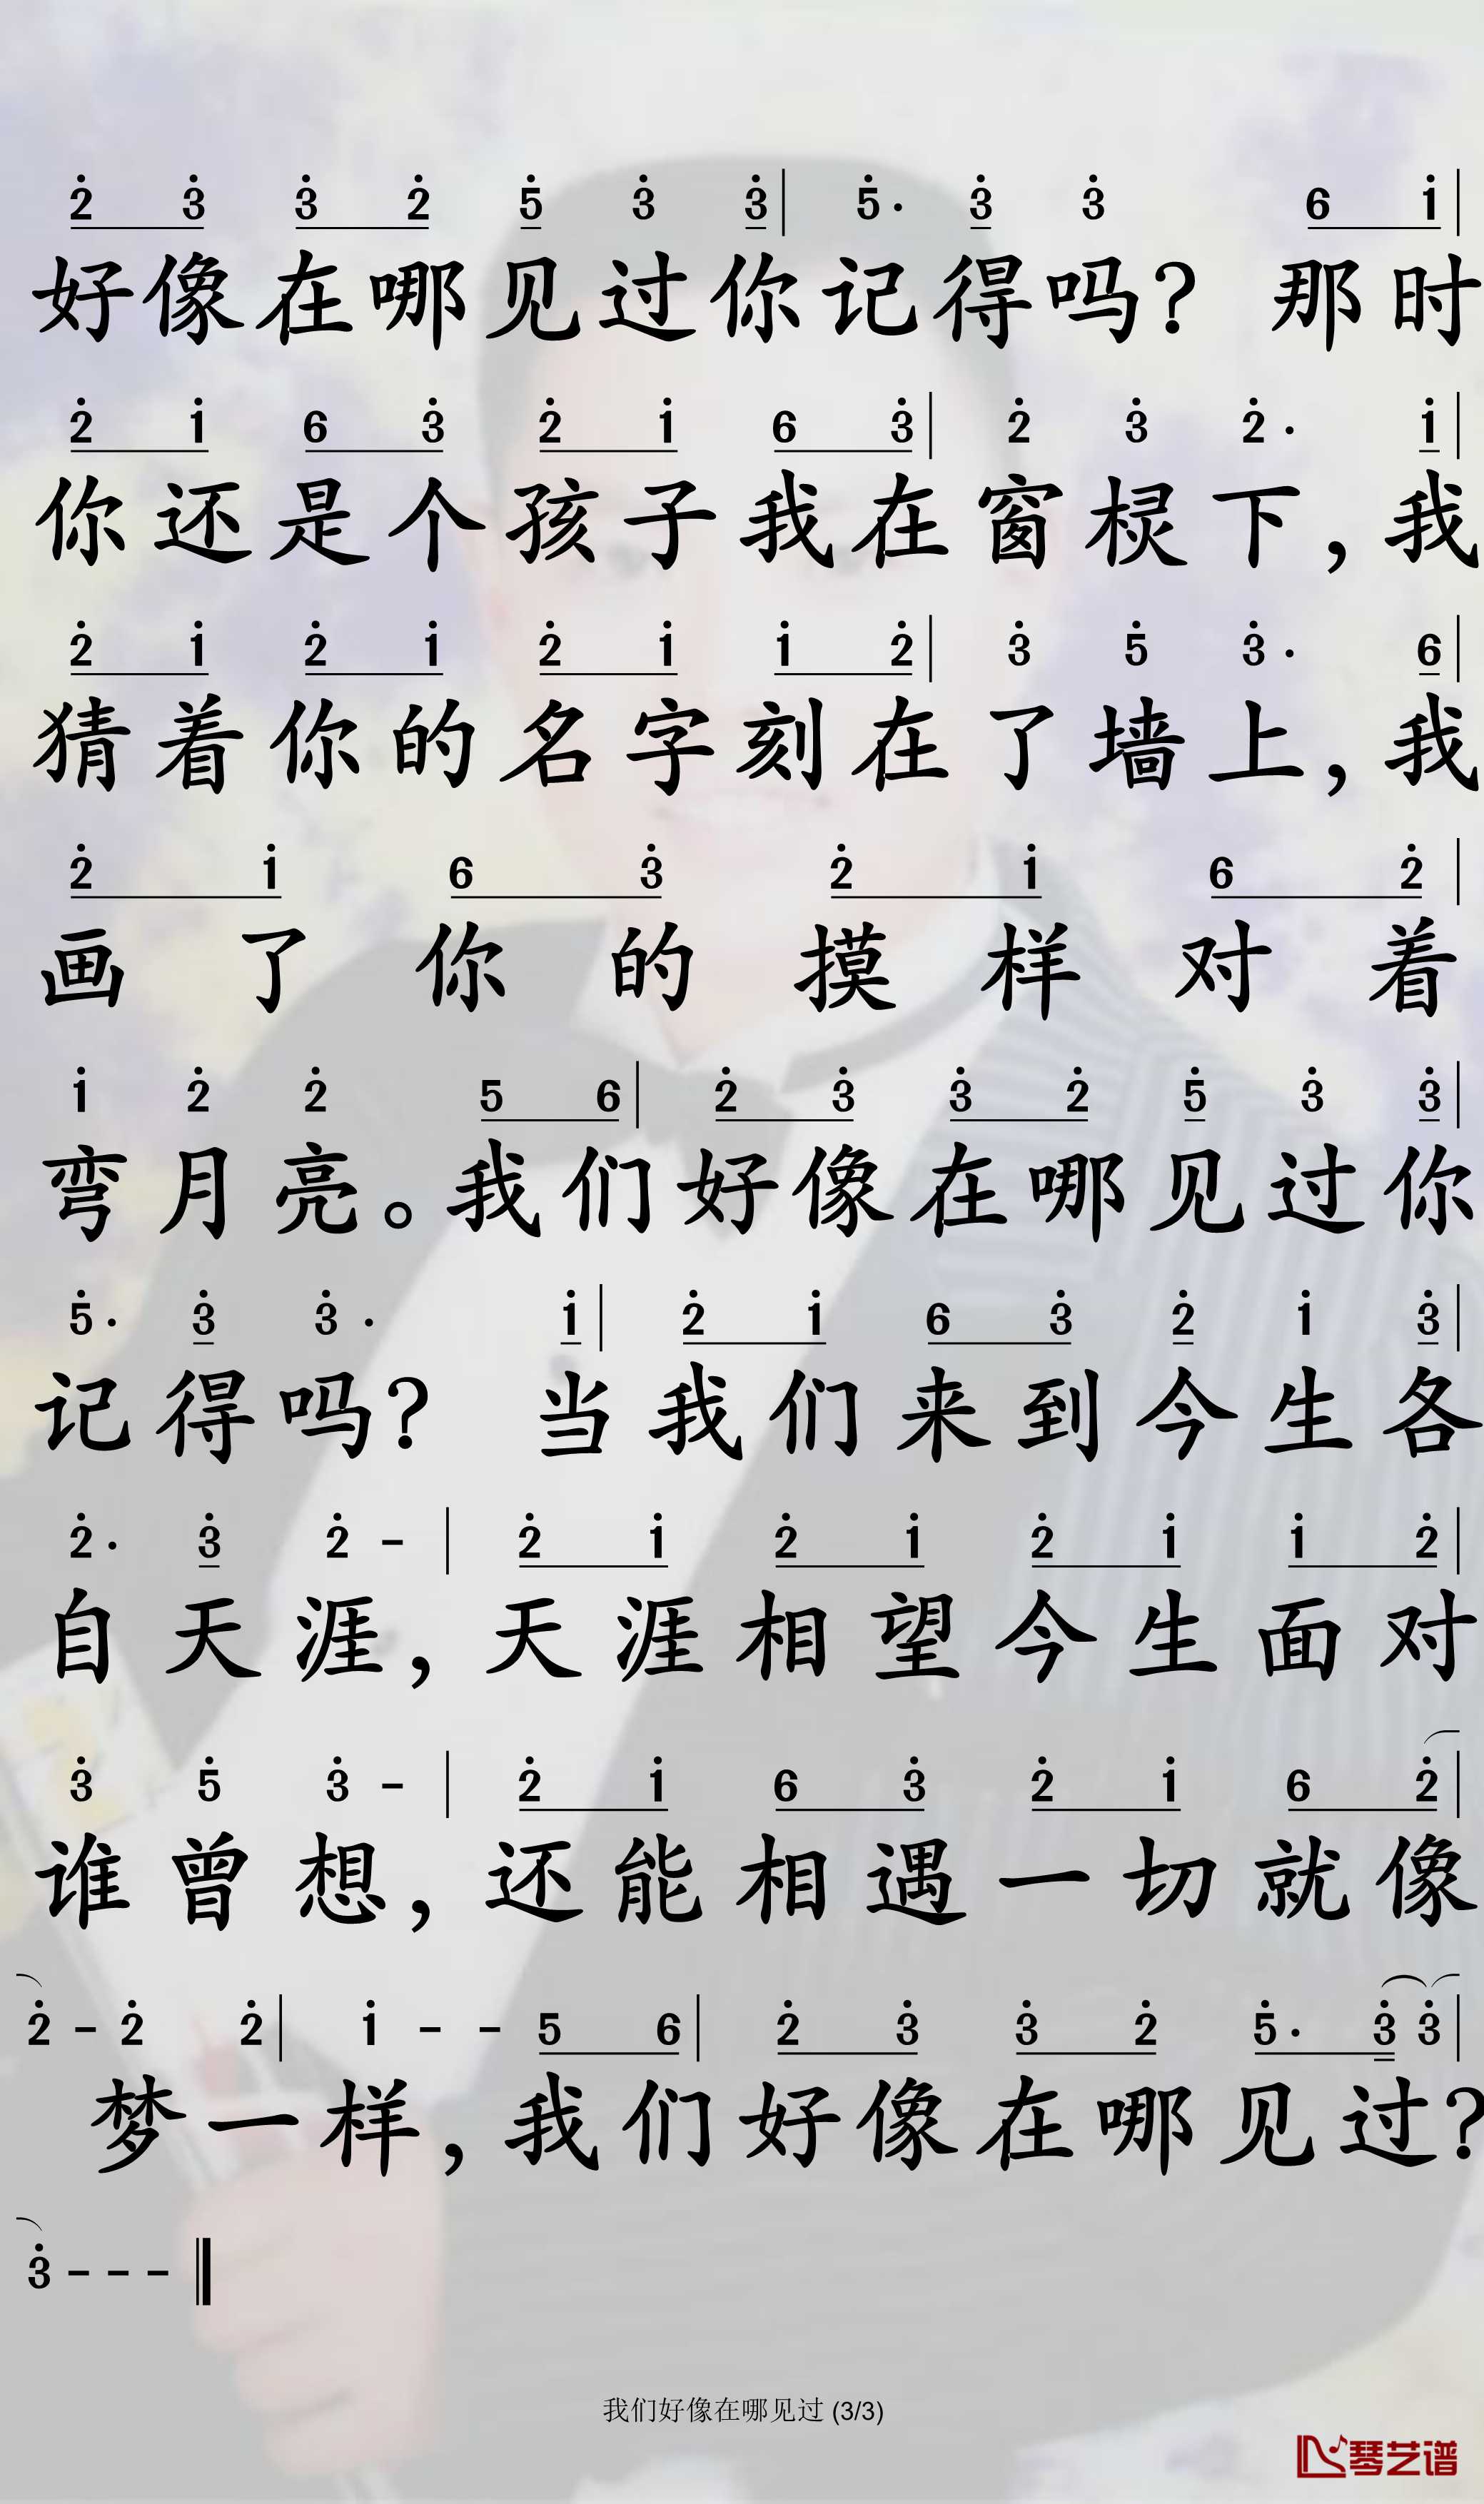 2 3 3 2 5 3 3 | 5· 3 3 6 1 |
好像在哪见过你记得吗？那时
2 1 6 3 2 1 6 3 | 2 3 2· 1 |
你还是个孩子我在窗棂下，我
2 1 2 1 2 1 1 2 | 3 5 3· 6 |
猜着你的名字刻在了墙上，我
2 1 6 3 2 1 6 2 |
画了你的摸样对着
1 2 2 5 6 | 2 3 3 2 5 3 3 |
弯月亮。我们好像在哪见过你
5· 3 3· 1 | 2 1 6 3 2 1 3 |
记得吗？当我们来到今生各
2· 3 2 - | 2 1 2 1 2 1 1 2 |
自天涯，天涯相望今生面对
3 5 3 - | 2 1 6 3 2 1 6 2 |
谁曾想，还能相遇一切就像
2 - 2 2 | 1 - - 5 6 | 2 3 3 2 5· 3 3 |
梦一样，我们好像在哪见过？
3 - - -
我们好像在哪见过 (3/3)
琴艺谱